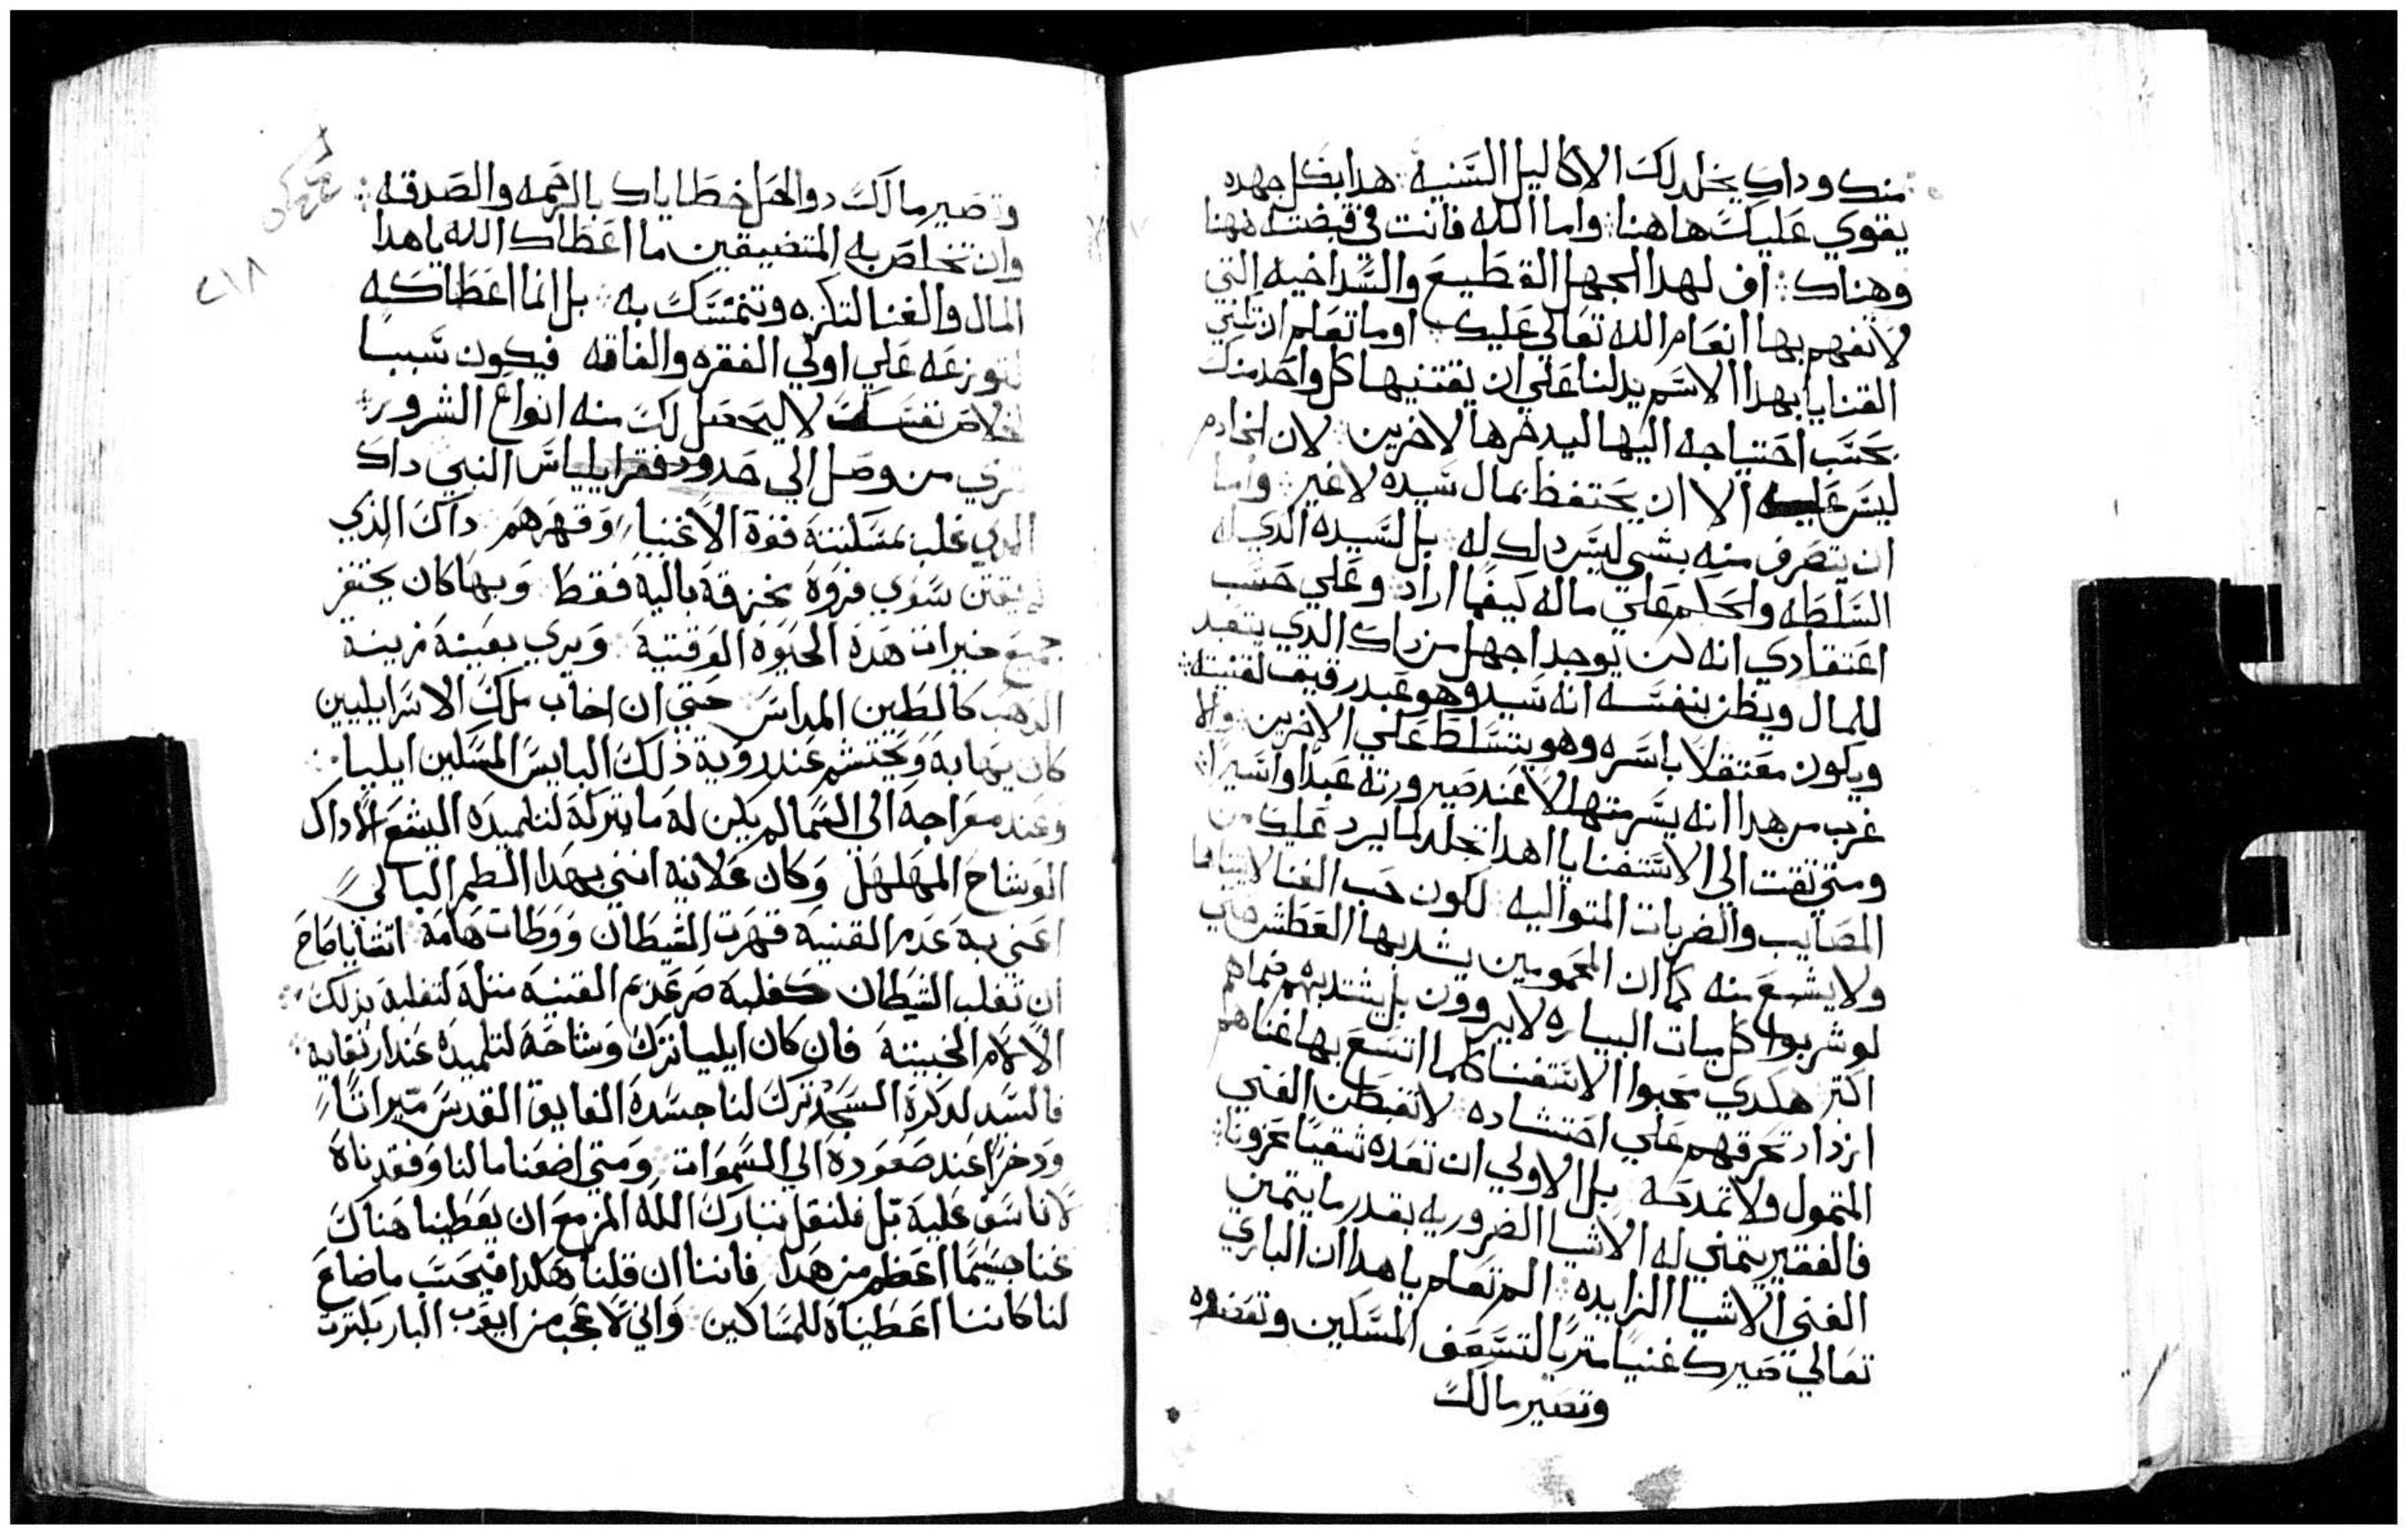 منك وداك يخلد لك الاكاليل السنيه ܀ هدا بكل جهده
يقوي عليك هاهنا ܀ واما الله فانت في قبضته ههنا
وهناك ܀ اف لهدا الجهل القطيع والسداجيه التي
لا تفهم بها انعام الله تعالي عليك ܀ اوما تعلم ان
القنايا بهدا الاسم يدلنا علي ان يقتنيها كل واحد منك
بحسب احتياجه اليها ليدخرها لاخرين ܀ لان الخادم
ليس عليه الا ان يحتفظ بمال سيده لاغير ܀ واما
ان تصرف منه بشي ليس دلك له ܀ بل لسيده الدي له
السلطه والحكم علي ماله كيفما اراد ܀ وعلي حسب
اعتقادي انه لن يوجد اجهل من داك الدي يتعبد
للمال ويظن بنفسه انه سيد وهو عبد رقيق لقنيته ܀
ويكون معتقلا باسره وهو يتسلط علي الاخرين والا
غرب من هدا انه يسر متهللا عند صيرورته عبدا واسيرا ܀
ومتي تقت الي الاستغنا يا هدا تجلد لما يرد عليك من
المصايب والضربات المتواليه ܀ لكون حب الغنا لا
ولا يشبع منه كما ان المحمومين يشد بها العطش حتي
لو شربوا كل مياه لا يروون بل يشتد بهم ضماهم
اكتر هكدي محبوا الاستغنا كلما اتسع بها غناهم
ازداد تحرقهم علي احتشاده ܀ لا تغبطن الغني
المتمول ولا تمدحه بل الاولي ان تعده شقيا محزونا ܀
فالفقير يتمني له الاشيا الضروريه بقدر ما يتمني
الغني الاشيا الزايده ܀ الم تعلم يا هدا ان الباري
تعالي صيرك غنيا متريا لتسعف المسكين وتعضده
وتصير مالك
وتصير مالك دوا لحل خطاياك بالرحمه والصدقه ܀
وان تخلص به المتضيقين ما اعطاك الله يا هدا
المال والغنا لتكنزه وتتمسك به ܀ بل انما اعطاكه
لتوزعه علي اولي الفقره والفاقه فيكون سببا
لخلاص نفسك لا ليحصل لك منه انواع الشرور ܀
تري من وصل الي حدود فقر ايلياس النبي داك
الدي غلب بمسكنته قوة الاغنيا وقهرهم داك الذي
لم يقتن سوي فروة مخزقة باليه فقط وبها كان يحتقر
جميع خيرات هده الحيوة الوقتية ܀ ويري بعينة زينة
الدهب كالطين المداس حتي ان اخاب ملك الاسراييليين
كان يهابة ويحتشم عند روية ذلك البايس المسكين ايليا ܀
وعند معراجه الي السما لم يكن له ما يتركه لتلميدة اليشع الا داك
الوشاح المهلهل وكان علانيه انني بهدا الطم البالي
اعني به عدم القنية قهرت الشيطان ووطات هامه
ان تغلب الشيطان عدم القنيه مثله لتغلبه بذلك ܀
الالام الخبيثة فان كان ايليا ترك وشاحة لتلميدة عند ارتقايه ܀
فالسيد لدكرة السجد ترك لنا جسدة الفايق القدس ميراثا
ودخرا عند صعودة الي السموات ܀ ومتي اضعنا مالنا وفقدناة
لا ناسف عليه بل فلنقل تبارك الله المزمع ان يعطينا هناك
غنا جسيما اعظم من هدا ܀ فاننا ان قلنا هكدا فيحتسب ما ضاع
لنا كاننا اعطيناة للمساكين ܀ واني لاعجب من ايوب البار
٢١٨